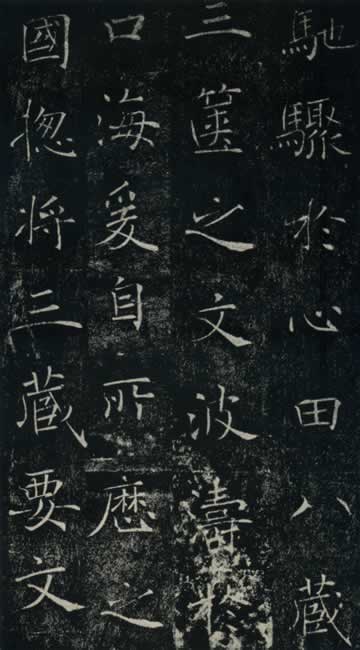 馳驟於心田八蔵
三篋之文波濤於
口海爰自所歷之
國揔将三蔵要文